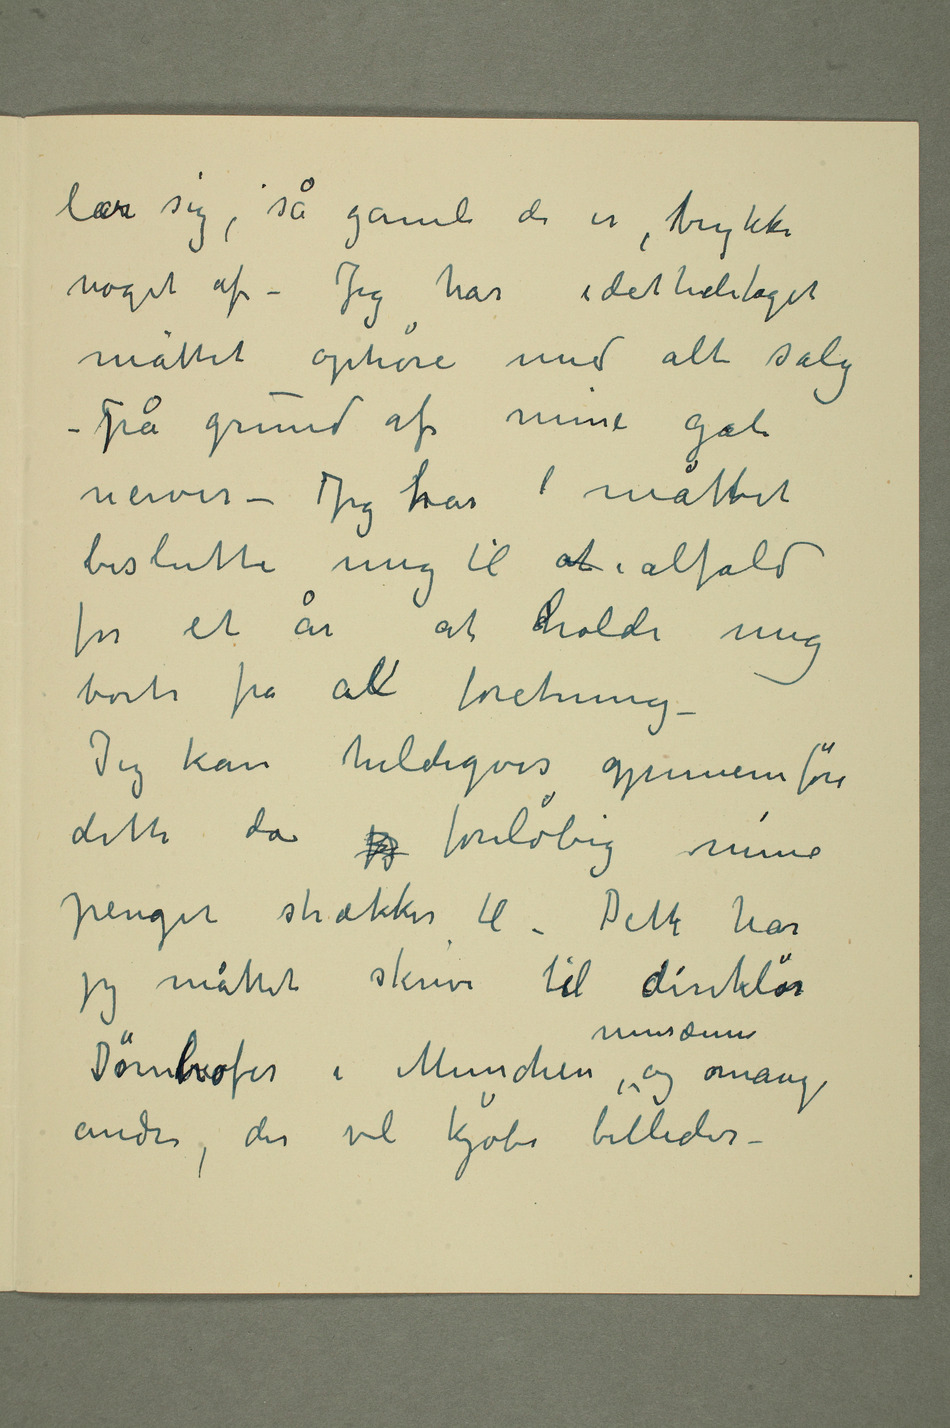 lar sig, så gamle de er, trykke
noget af – Jeg har idetheletaget
måttet ophöre med alt salg
– På grund af mine gale
nerver – Jeg har måttet
beslutte mig til at ialfald
for et år at holde mig
borte fra al foretning –
Jeg kan heldigvis gjennemföre
dette da foreløbig mine
penger strækker til – Dette har
jeg måttet skrive til direktör
museum
Dörnhofer i Munchen, og mange
andre, der vil kjøbe billeder –